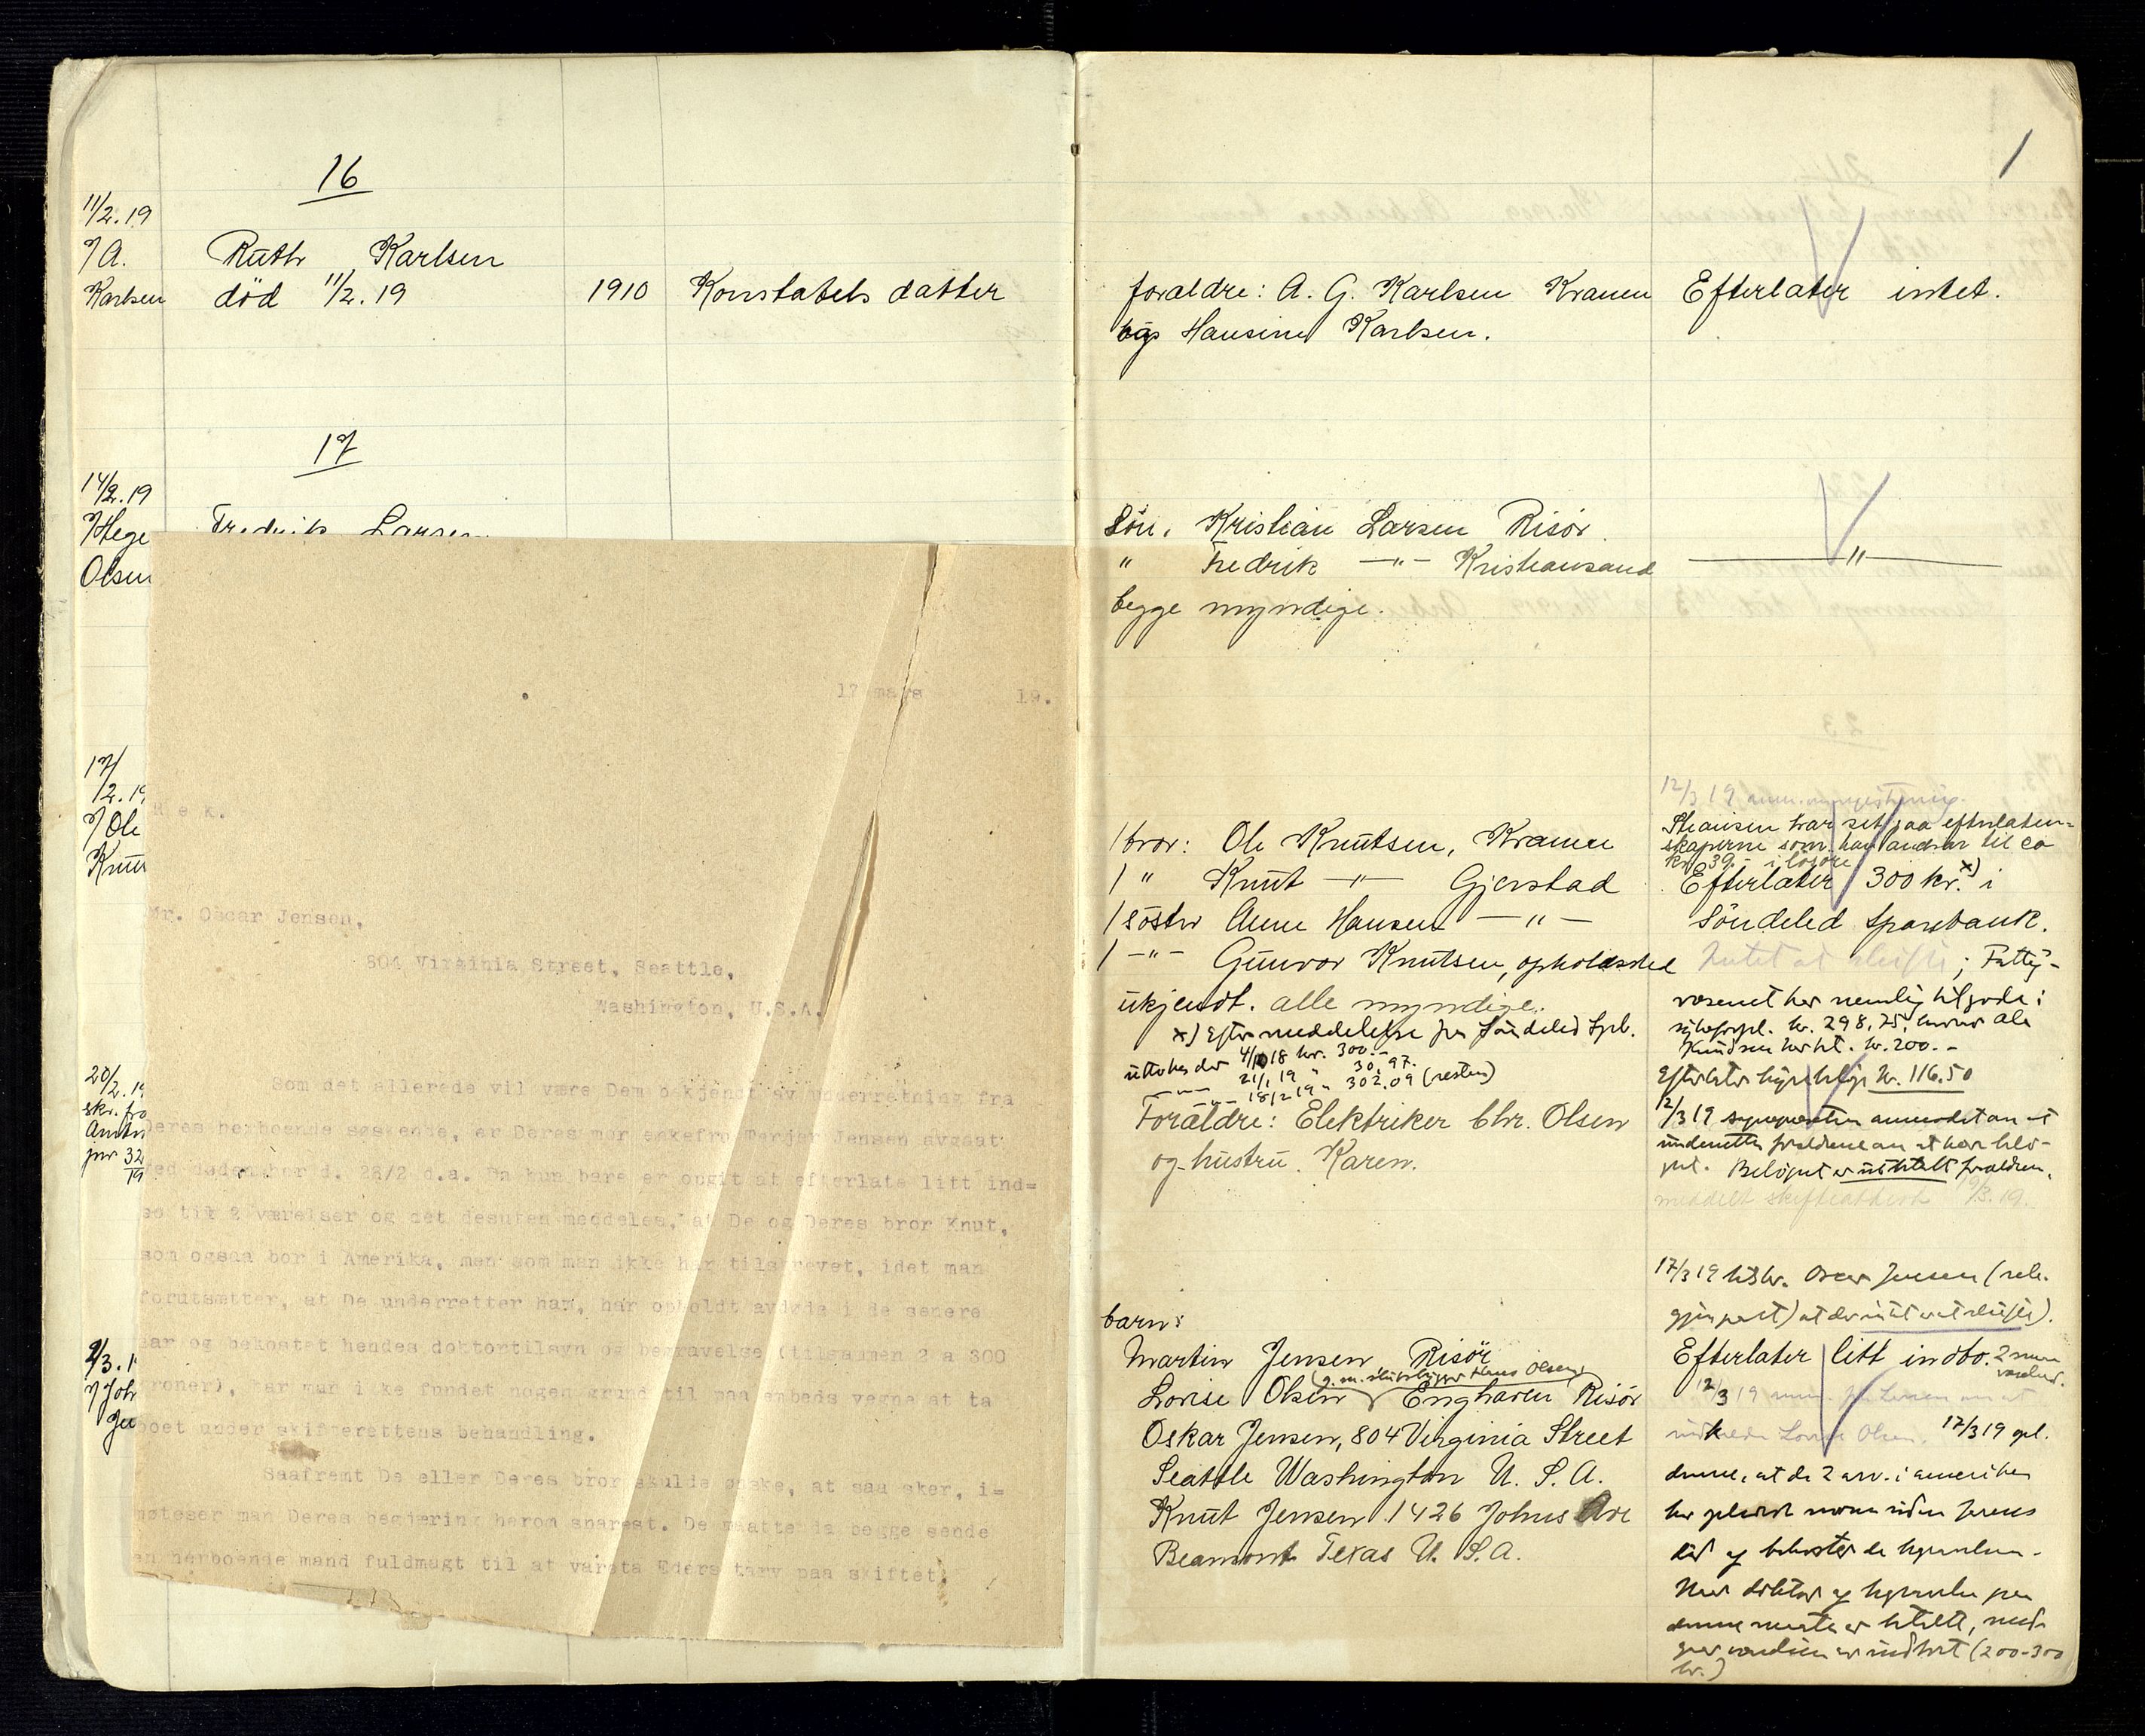 16
11/2.19
A.
Karlsen
Ruth Karlsen
död 11/2.19
1910
Konstabels datter
17
14/2.19
Hege
Olsen
Fredrik Larsen
17/
2.19
Ole
Knut
20/2.19
skr. fra
Amtm
jnr 32
19
2/3.1
Joh
Je
17 mars 19.
R e k.
Mr. Oscar Jensen,
804 Virginia Street, Seattle,
Washington, U.S.A.
Som det allerede vil være Dem bekjendt av underretning fra
Deres herboende søskende, er Deres mor enkefru Jensen avgaat
ved døden her d. 28/2 d.a. Da hun bare er opgit at efterlate litt ind=
bo til 2 værelser og det desuten meddeles, at De og Deres bror Knut,
som ogsaa bor i Amerika, men som man ikke har tilskrevet, idet man
forutsætter, at De underretter ham, har opholdt avdøde i de senere
aar og bekostet hendes doktortilsyn og begravelse (tilsammen 2 a 300
kroner), har man ikke fundet nogen grund til paa embeds vegne at ta
boet under skifterettens behandling.
Saafremt De eller Deres bror skulde ønske, at saa sker, i=
møteser man Deres begjæring herom snarest. De maatte da begge sende
en herboende mand fuldmagt til at vareta Eders tarv paa skiftet.
1
foraldre: A. G. Karlsen Kranen
og Hansine Karlsen.
Efterlater intet.
Sön. Kristian Larsen Risör.
" Fredrik —"— Kristiansand
begge myndige.
—"—
1 bror: Ole Knutsen, Kranen
1 " Knut —"— Gjerstad
1 söster Anne Hansen —"—
1 —"— Gunvor Knutsen, opholdssted
ukjendt. alle myndige.
x) Efter meddelelse fra Söndeled Spb.
18 kr. 300.-
21/1 19 " 30,97.
18/2 19 " 302.09 (resten)
12/3 19
har set paa efterlaten=
skaperne som han andrar til ca
kr. 39.- i lösöre
Efterlater 300 kr. x) i
Söndeled Sparebank.
Intet at skifte; Fattig-
væsenet har nemlig tilgode i
kr. 298,75, hvorav Ole
Knudsen har bet. kr. 200.-
Foraldre: Elektriker Chr. Olsen
og hustru Karen.
Efterlater kr. 116.50
12/3 19 anmodet om at
underrette foraldrene om at heve belö-
pet. Belöpet er utbetalt foraldrene.
meddelt skifteattest /3.19.
barn:
Martin Jensen Risör
(g. m. Hans Olsen)
Lovise Olsen Enghaven Risör
Oskar Jensen, 804 Virginia Street
Seattle Washington U. S. A.
Knut Jensen 1426 Johns Ave
Beamont Texas U. S. A.
17/3 19 tilskr. Oscar Jensen (rek.
gjenpart) at der intet er at skifte).
Efterlater litt indbo. 2 værelser.
12/3 19
Lovise Olsen. 17/3 19 opl.
denne, at de 2 arv. i amerika
har
död og bekostet begravelsen.
Naar doktor og begravelse paa
denne maate er betalt, med-
gaar er indhert (200-300
kr.)